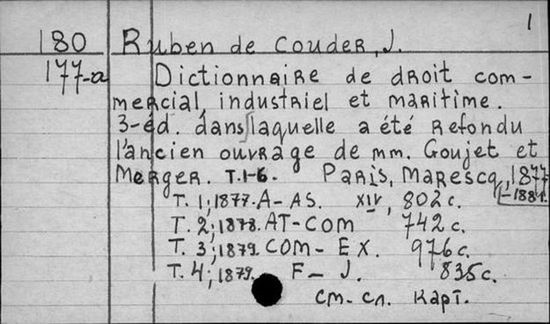 1
180 Ruben de Couder, J.
177-a Dictionnaire de droit com-
mercial, industriel et maritime.
3-éd. dans laquelle a été refondu
l'ancien ouvrage de mm. Goujet et
Merger. T.1-6. Paris, Marescq, 1877
-1881.
T. 1; 1877. A-AS. XIV, 802 c.
T. 2; 1878. AT-COM 742 c.
T. 3; 1879. COM-EX. 976 c.
T. 4; 1879. F-J. 835 c.
см. сл. карт.